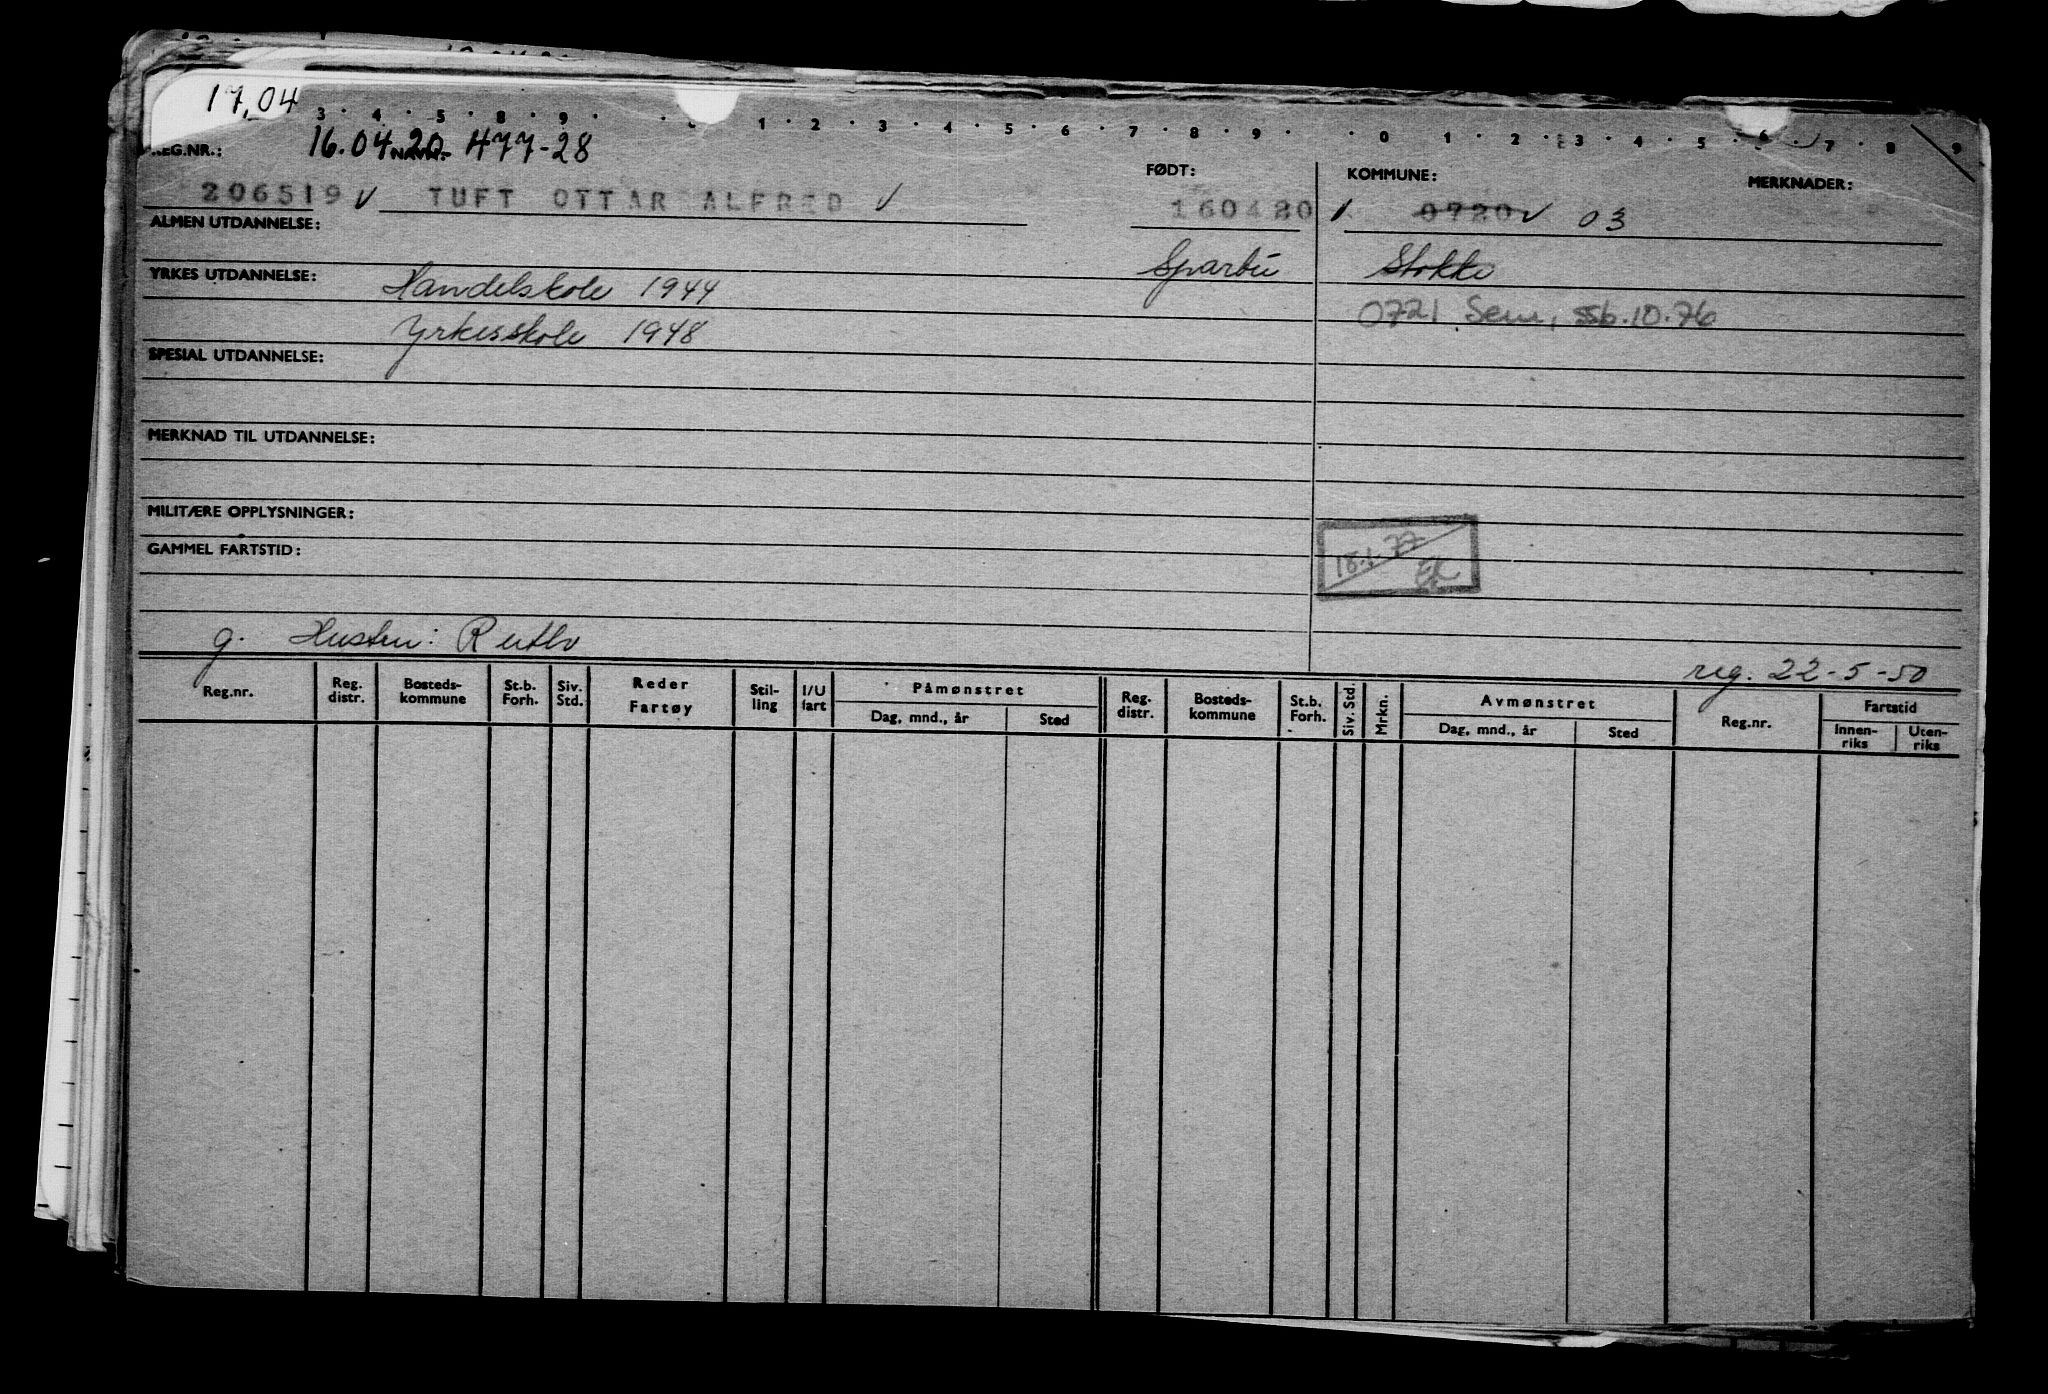 17,04
3 · 4 · 5 · 8 · 9 · · 1 · 2 · 3 · 4 · 5 · 6 · 7 · 8 · 9 · · 0 · 1 · 2 · 3 · 4 · 5 · 6 · 7 · 8 · 9
16.04.20 477-28
REG.NR.: NAVN: FØDT: KOMMUNE: MERKNADER:
206519 ✓ TUFT OTTAR ALFRED ✓ 160420 ✓ 0720 ✓ 03
ALMEN UTDANNELSE:
Sparbu Stokke
YRKES UTDANNELSE: Handelskole 1944
0721 Sem, ssb.10.76
Yrkesskole 1948
SPESIAL UTDANNELSE:
MERKNAD TIL UTDANNELSE:
MILITÆRE OPPLYSNINGER:
GAMMEL FARTSTID:
18.1.77
g. Husten: Ruth
reg. 22-5-50
Reg.nr. Reg. distr. Bosteds-kommune St.b. Forh. Siv. Std. Reder Fartøy Stil-ling I/U fart Påmønstret Reg. distr. Bosteds-kommune St.b. Forh. Siv. Std. Mrkn. Avmønstret Reg.nr. Fartstid
Dag, mnd., år Sted Dag, mnd., år Sted Innen-riks Uten-riks